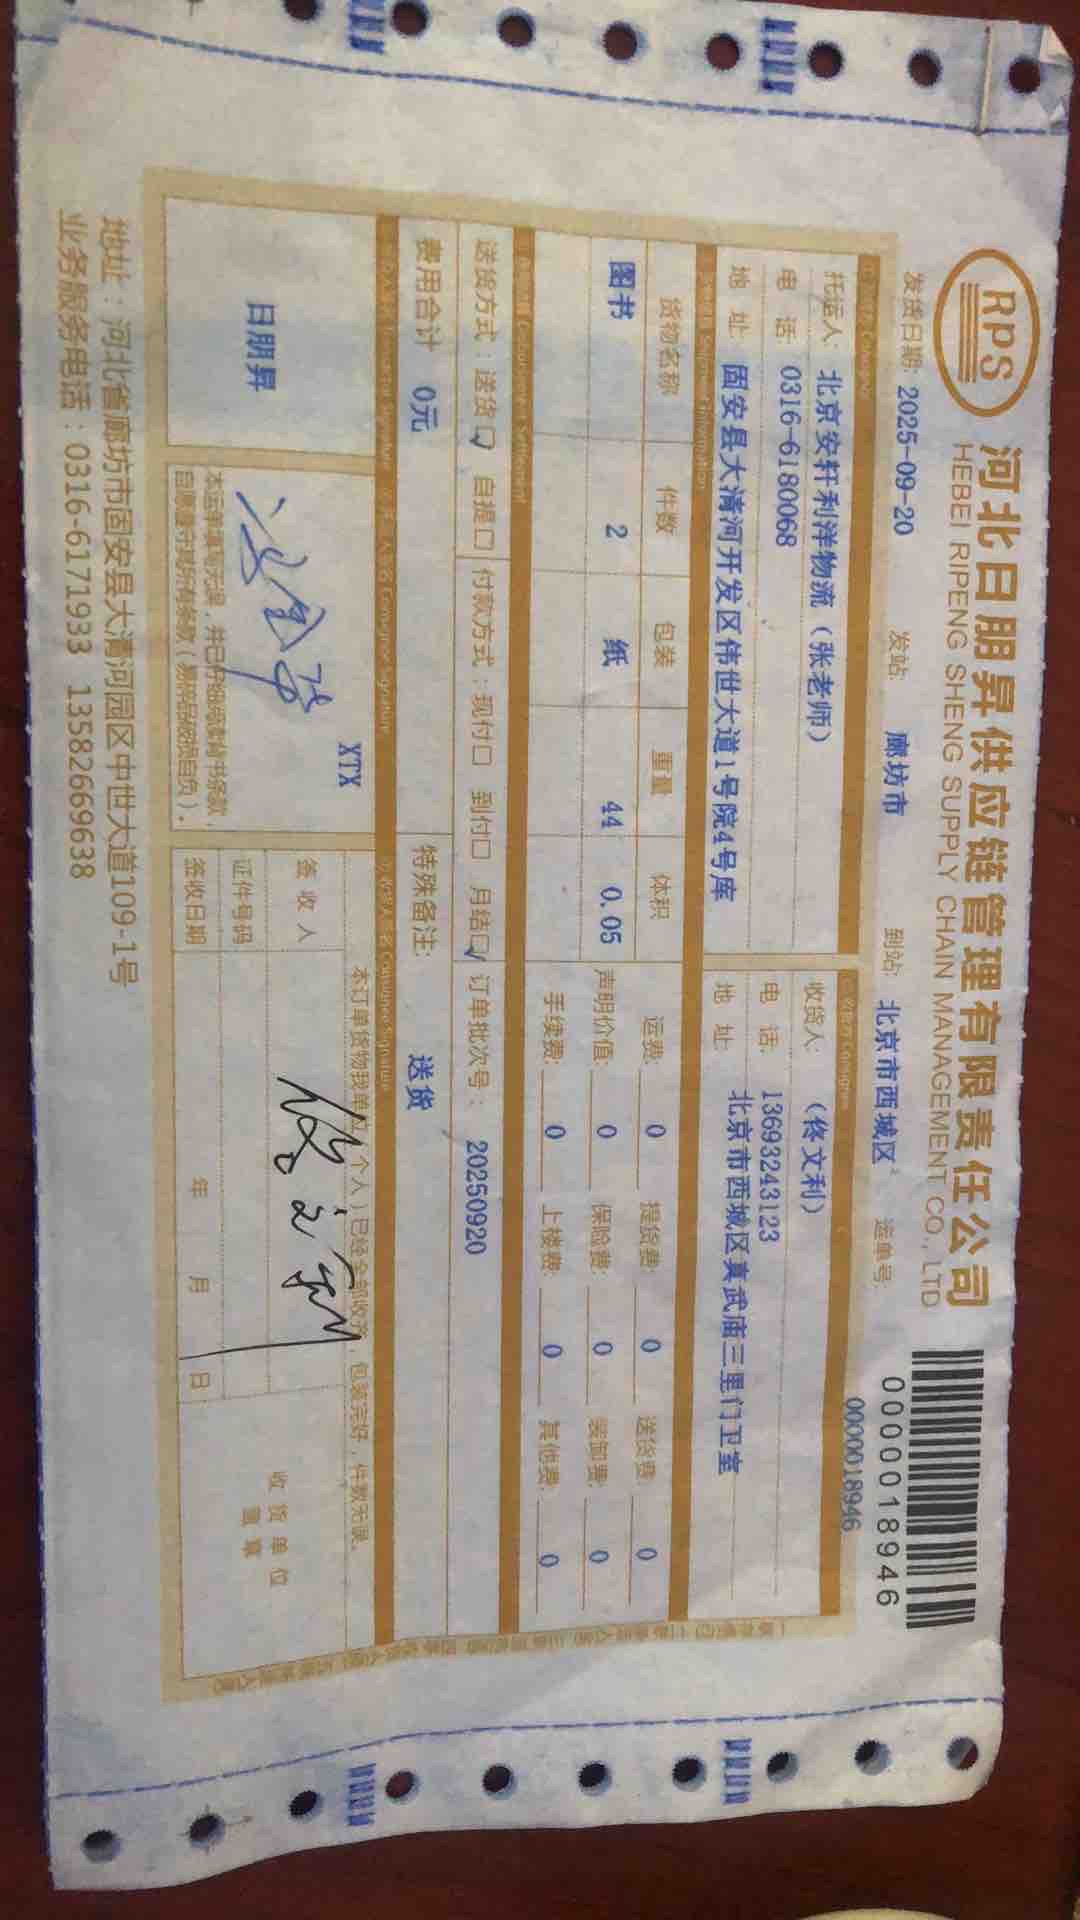 RPS
河北日朋昇供应链管理有限责任公司
HEBEI RIPENG SHENG SUPPLY CHAIN MANAGEMENT CO., LTD
0000018946
发货日期: 2025-09-20 发站: 廊坊市 到站: 北京市西城区 运单号: 0000018946
托运人: 北京安轩利洋物流（张老师）
电 话: 0316-6180068
地 址: 固安县大清河开发区伟世大道1号院4号库
收货人: （佟文利）
电 话: 13693243123
地 址: 北京市西城区真武庙三里门卫室
Shipment Information
货物名称 件数 包装 重量 体积
图书 2 纸 44 0.05
运费: 0 提货费: 0 送货费: 0
声明价值: 0 保险费: 0 装卸费: 0
手续费: 0 上楼费: 0 其他费: 0
送货方式：送货☑ 自提☐ 付款方式：现付☐ 到付☐ 月结☑ 订单批次号： 20250920
费用合计 0元 特殊备注: 送货
Consignee Signature
日朋昇
XTX
本运单填写无误，并已仔细阅读背书条款，
自愿遵守所有条款（易碎品破损自负）.
本订单货物我单位（个人）已经全部收齐，包装完好，件数无误。
签收人 佟文利
证件号码
签收日期 年 月 日
收货单位
盖章
地址：河北省廊坊市固安县大清河园区中世大道109-1号
业务服务电话：0316-6171933 13582669638